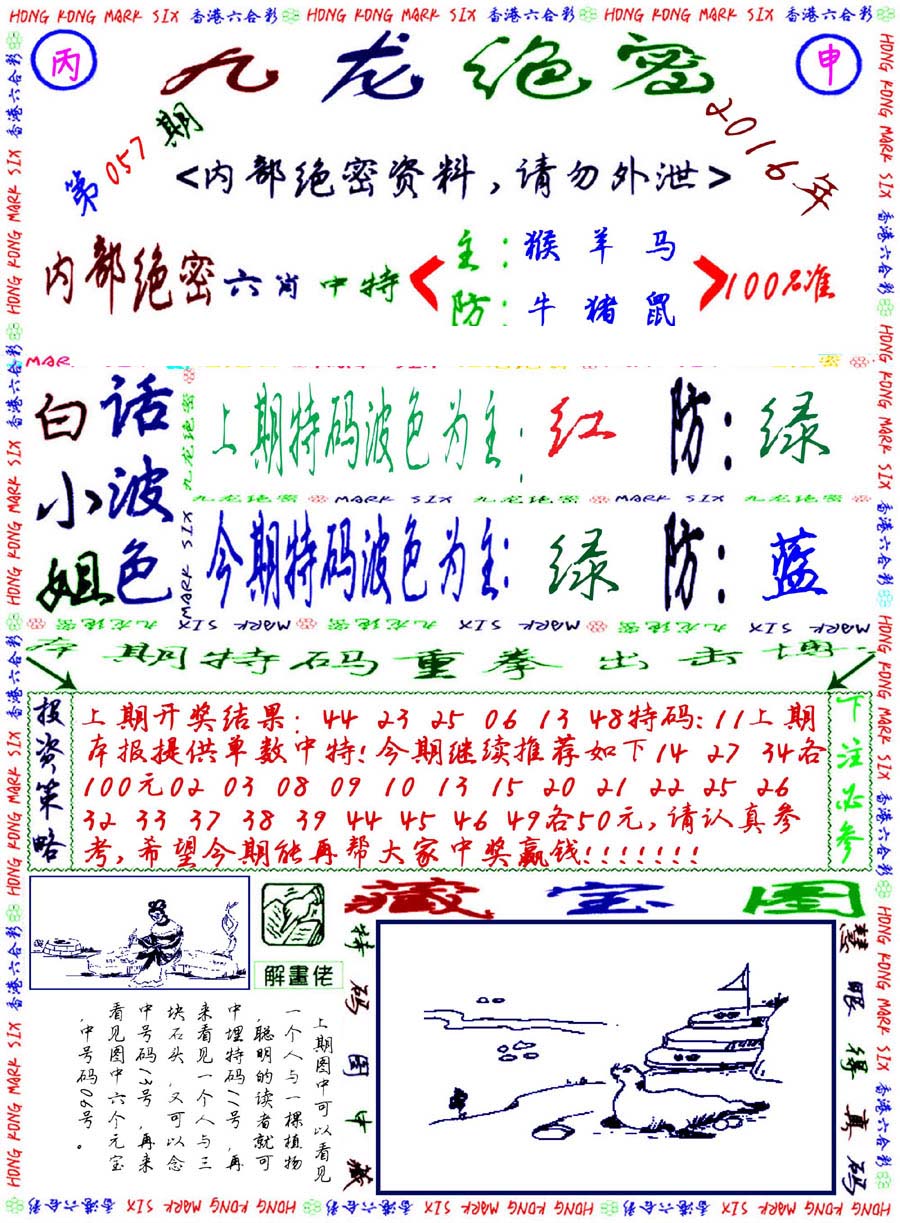 HONG KONG MARK SIX 香港六合彩 HONG KONG MARK SIX 香港六合彩 HONG KONG MARK SIX 香港六合彩
丙 九龙绝密 申
第057期
2016年
<内部绝密资料，请勿外泄>
内部绝密六肖中特
主：猴 羊 马
防：牛 猪 鼠
100%准
MARK
白话小波姐色
上期特码波色为主：红 防：绿
九龙绝密 MARK SIX 九龙绝密 MARK SIX 九龙绝密
今期特码波色为主：绿 防：蓝
九龙绝密 MARK SIX 九龙绝密 MARK SIX 九龙绝密 MARK SIX 九龙绝密 MARK SIX
本期特码重拳出击博
投资策略
上期开奖结果：44 23 25 06 13 48特码：11上期
本报提供单数中特！今期继续推荐如下14 27 34各
100元02 03 08 09 10 13 15 20 21 22 25 26
32 33 37 38 39 44 45 46 49各50元，请认真参
考，希望今期能再帮大家中奖赢钱！！！！！！！
下注必参
藏宝图
解畫佬
上期图中可以看见
一个人与一棵植物
，聪明的读者就可
中埋特码11号，再
来看见一个人与三
块石头，又可以念
中号码13号，再来
看见图中六个元宝
，中号码06号。
特码图中藏
慧眼得真码
HONG KONG MARK SIX 香港六合彩 HONG KONG MARK SIX 香港六合彩 HONG KONG MARK SIX 香港六合彩